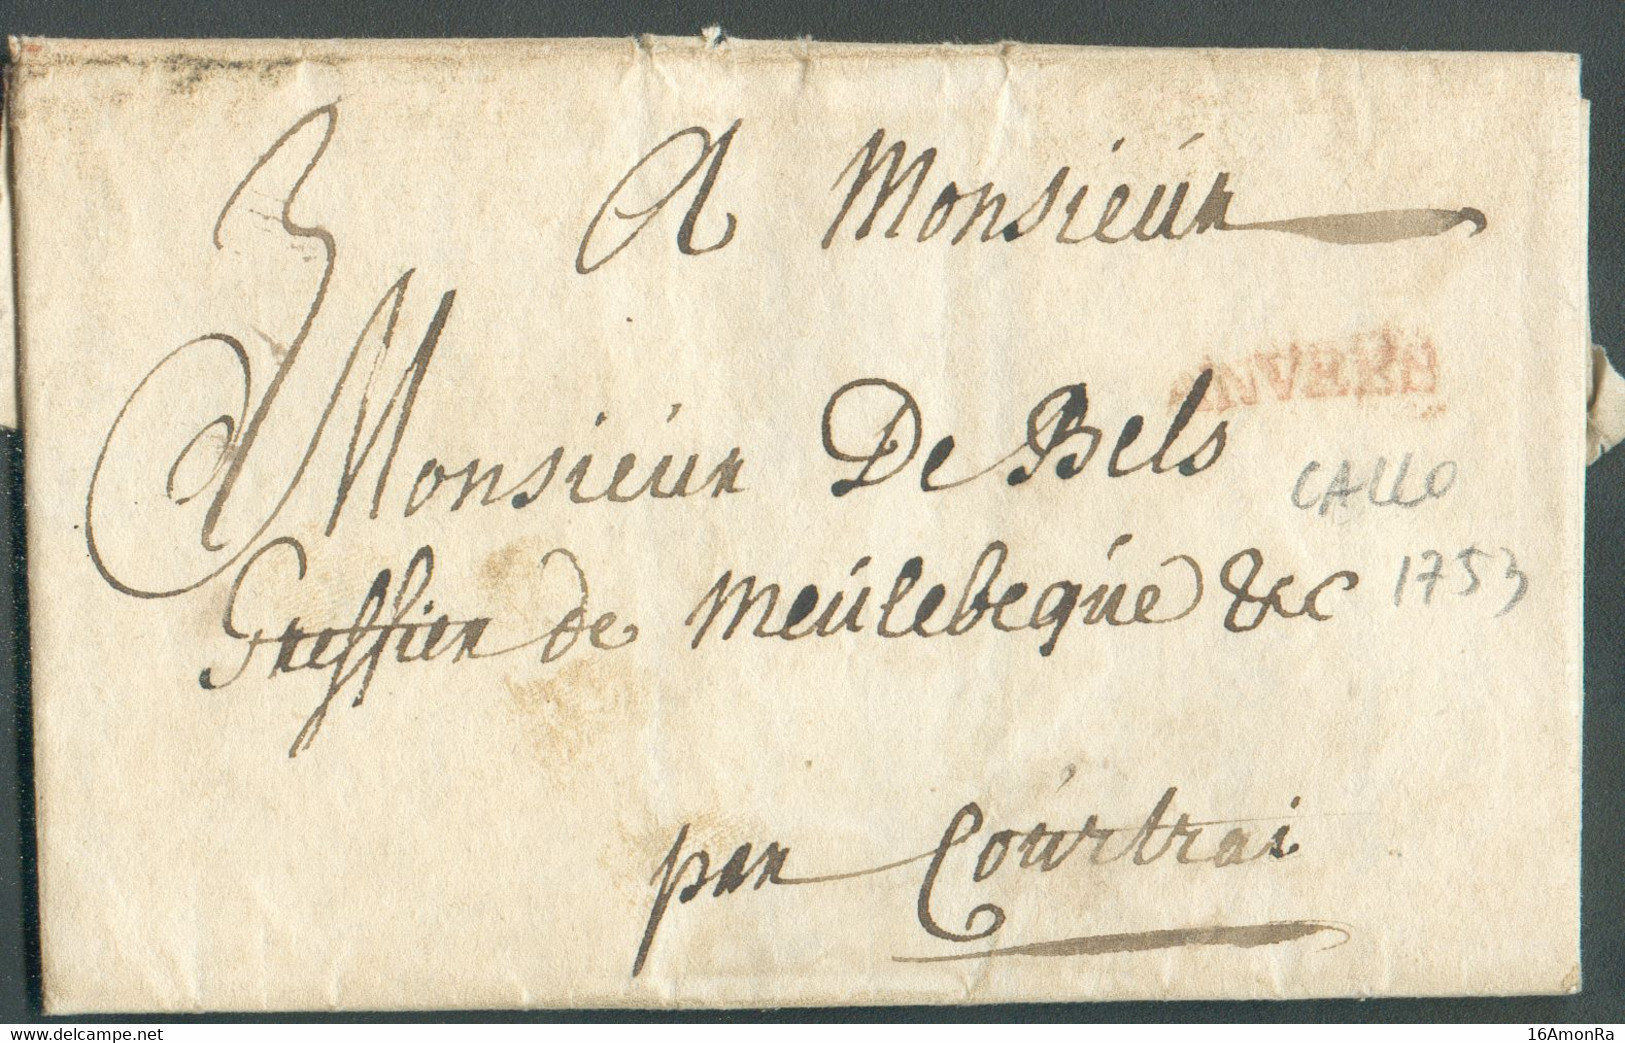 3
A Monsieur
Monsieur De Bels
CALLO
Greffier de Meulebeque &c
1753
par Courtrai
©delcampe.net
16AmonRa